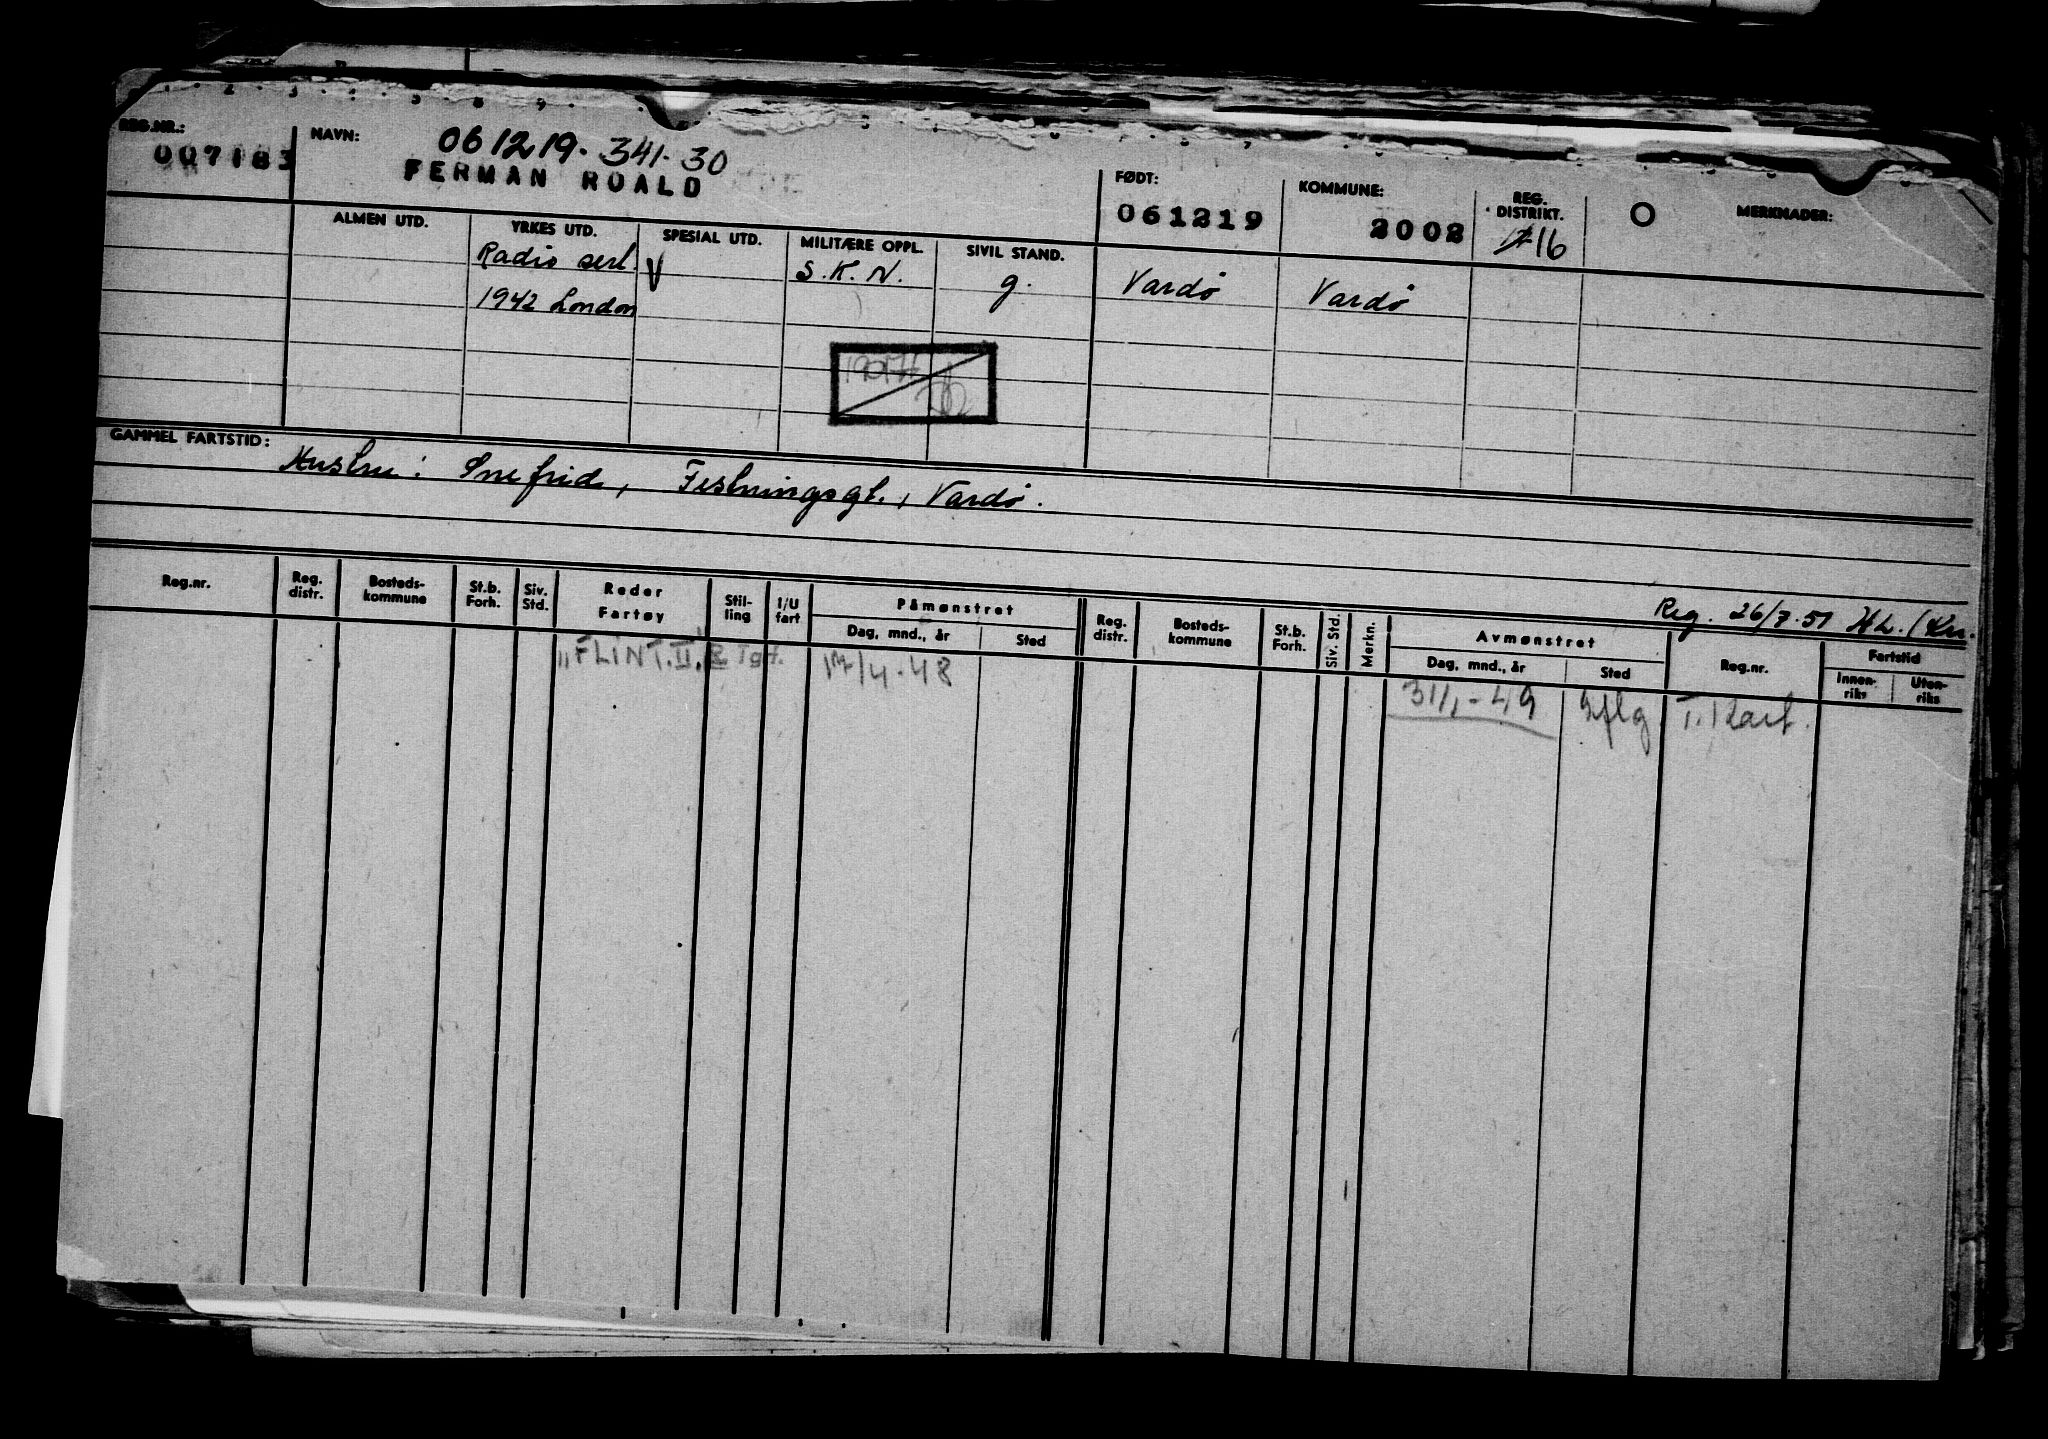 REG.NR.: 007183
NAVN: 061219. 341. 30
FERMAN ROALD
FØDT: 061219
KOMMUNE: 2002
REG. DISTRIKT. 16
MERKNADER:
ALMEN UTD. YRKES UTD. SPESIAL UTD. MILITÆRE OPPL. SIVIL STAND.
Radio serl. V S.K.N. g. Vardø Vardø
1942 London
GAMMEL FARTSTID:
Hustru: Snefrid, Festningsgt., Vardø.
Reg. 26/7.51 HL.
Reg.nr. Reg. distr. Bosteds-kommune St.b. Forh. Siv. Std. Reder Fartøy Stil-ling I/U fart Påmønstret Dag, mnd., år Sted Reg. distr. Bosteds-kommune St.b. Forh. Siv. Std. Merkn. Avmønstret Dag, mnd., år Sted Reg.nr. Fartstid Innen-riks Uten-riks
"FLINT.II." Tgf. 17/4-48 31/1-49 T.Kart.